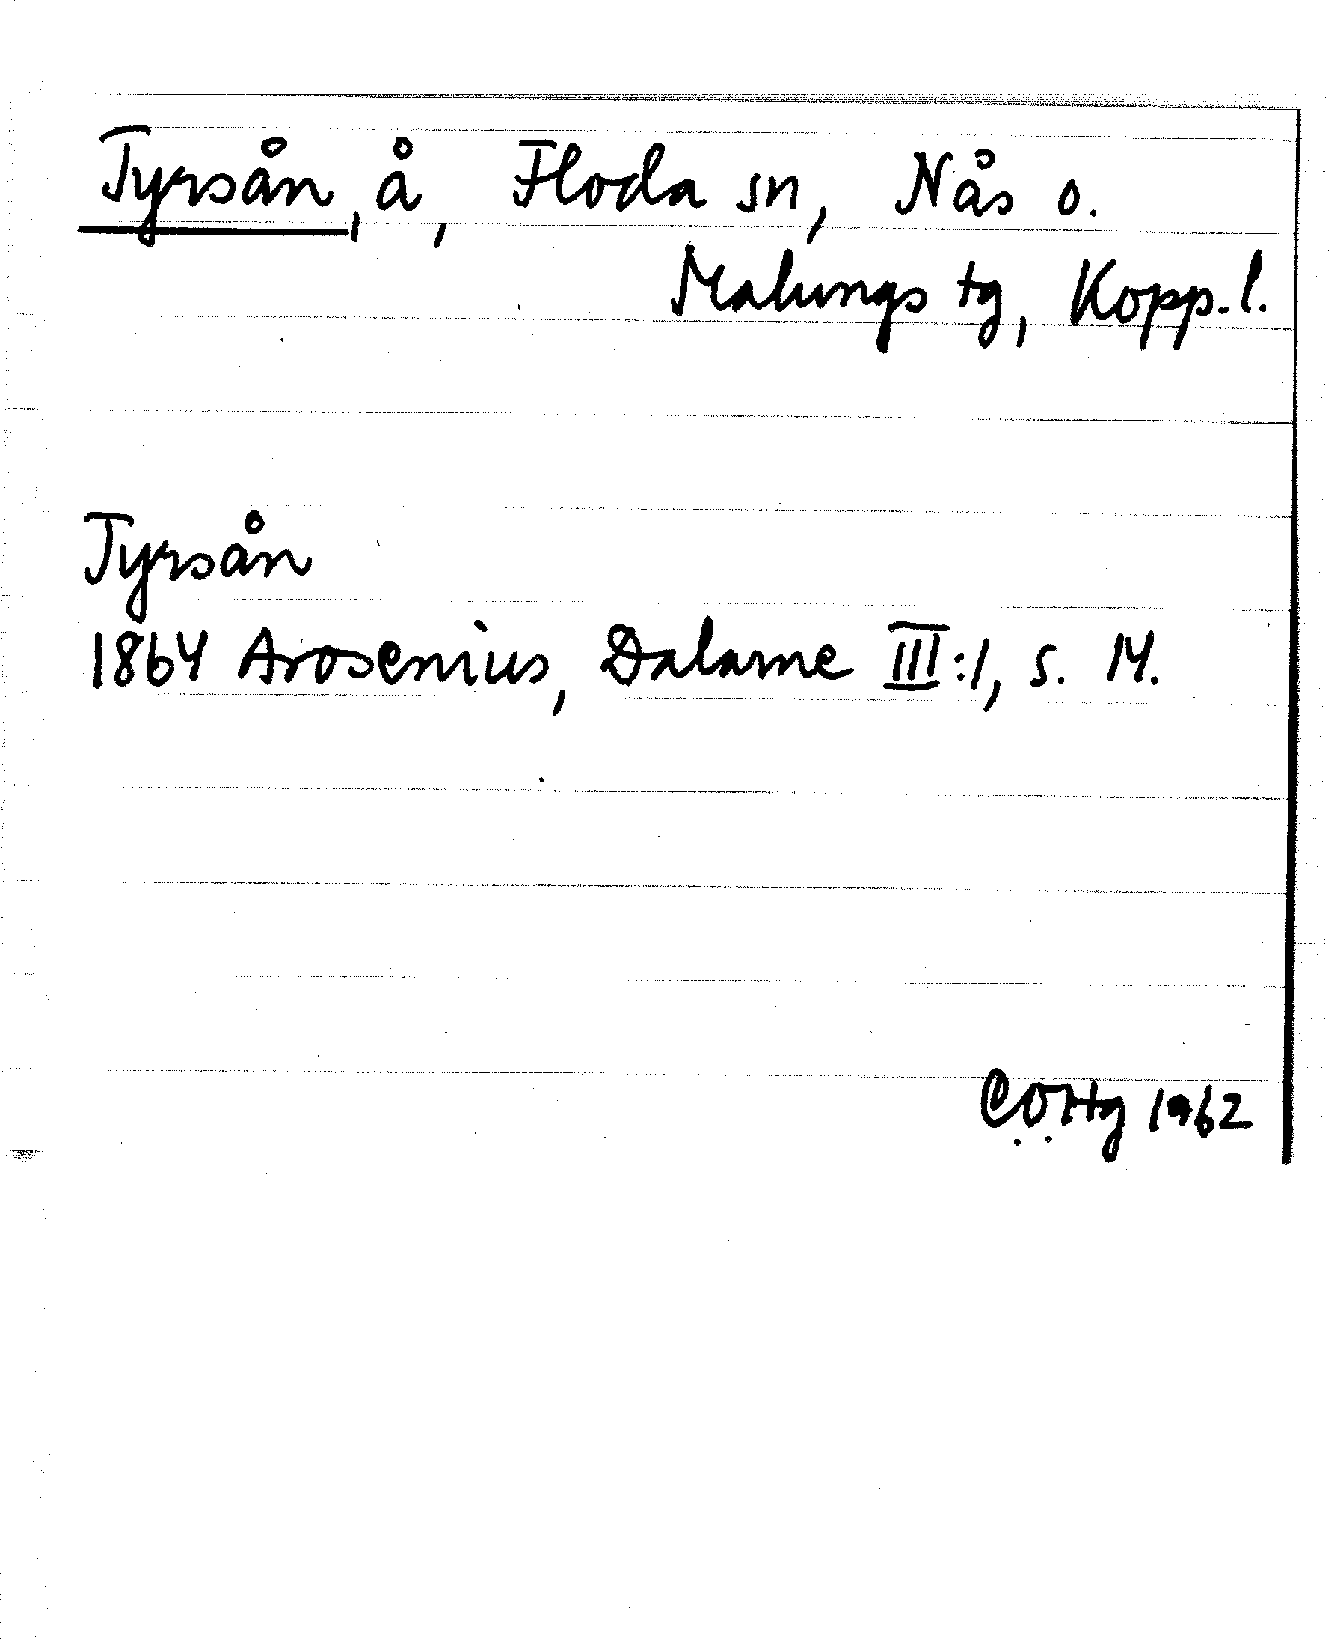 Tyrsån, å, Floda sn, Nås o.
Malungs tg, Kopp. l.
Tyrsån
1864 Arosenius, Dalarne III:1, s. 14.
COHg 1962